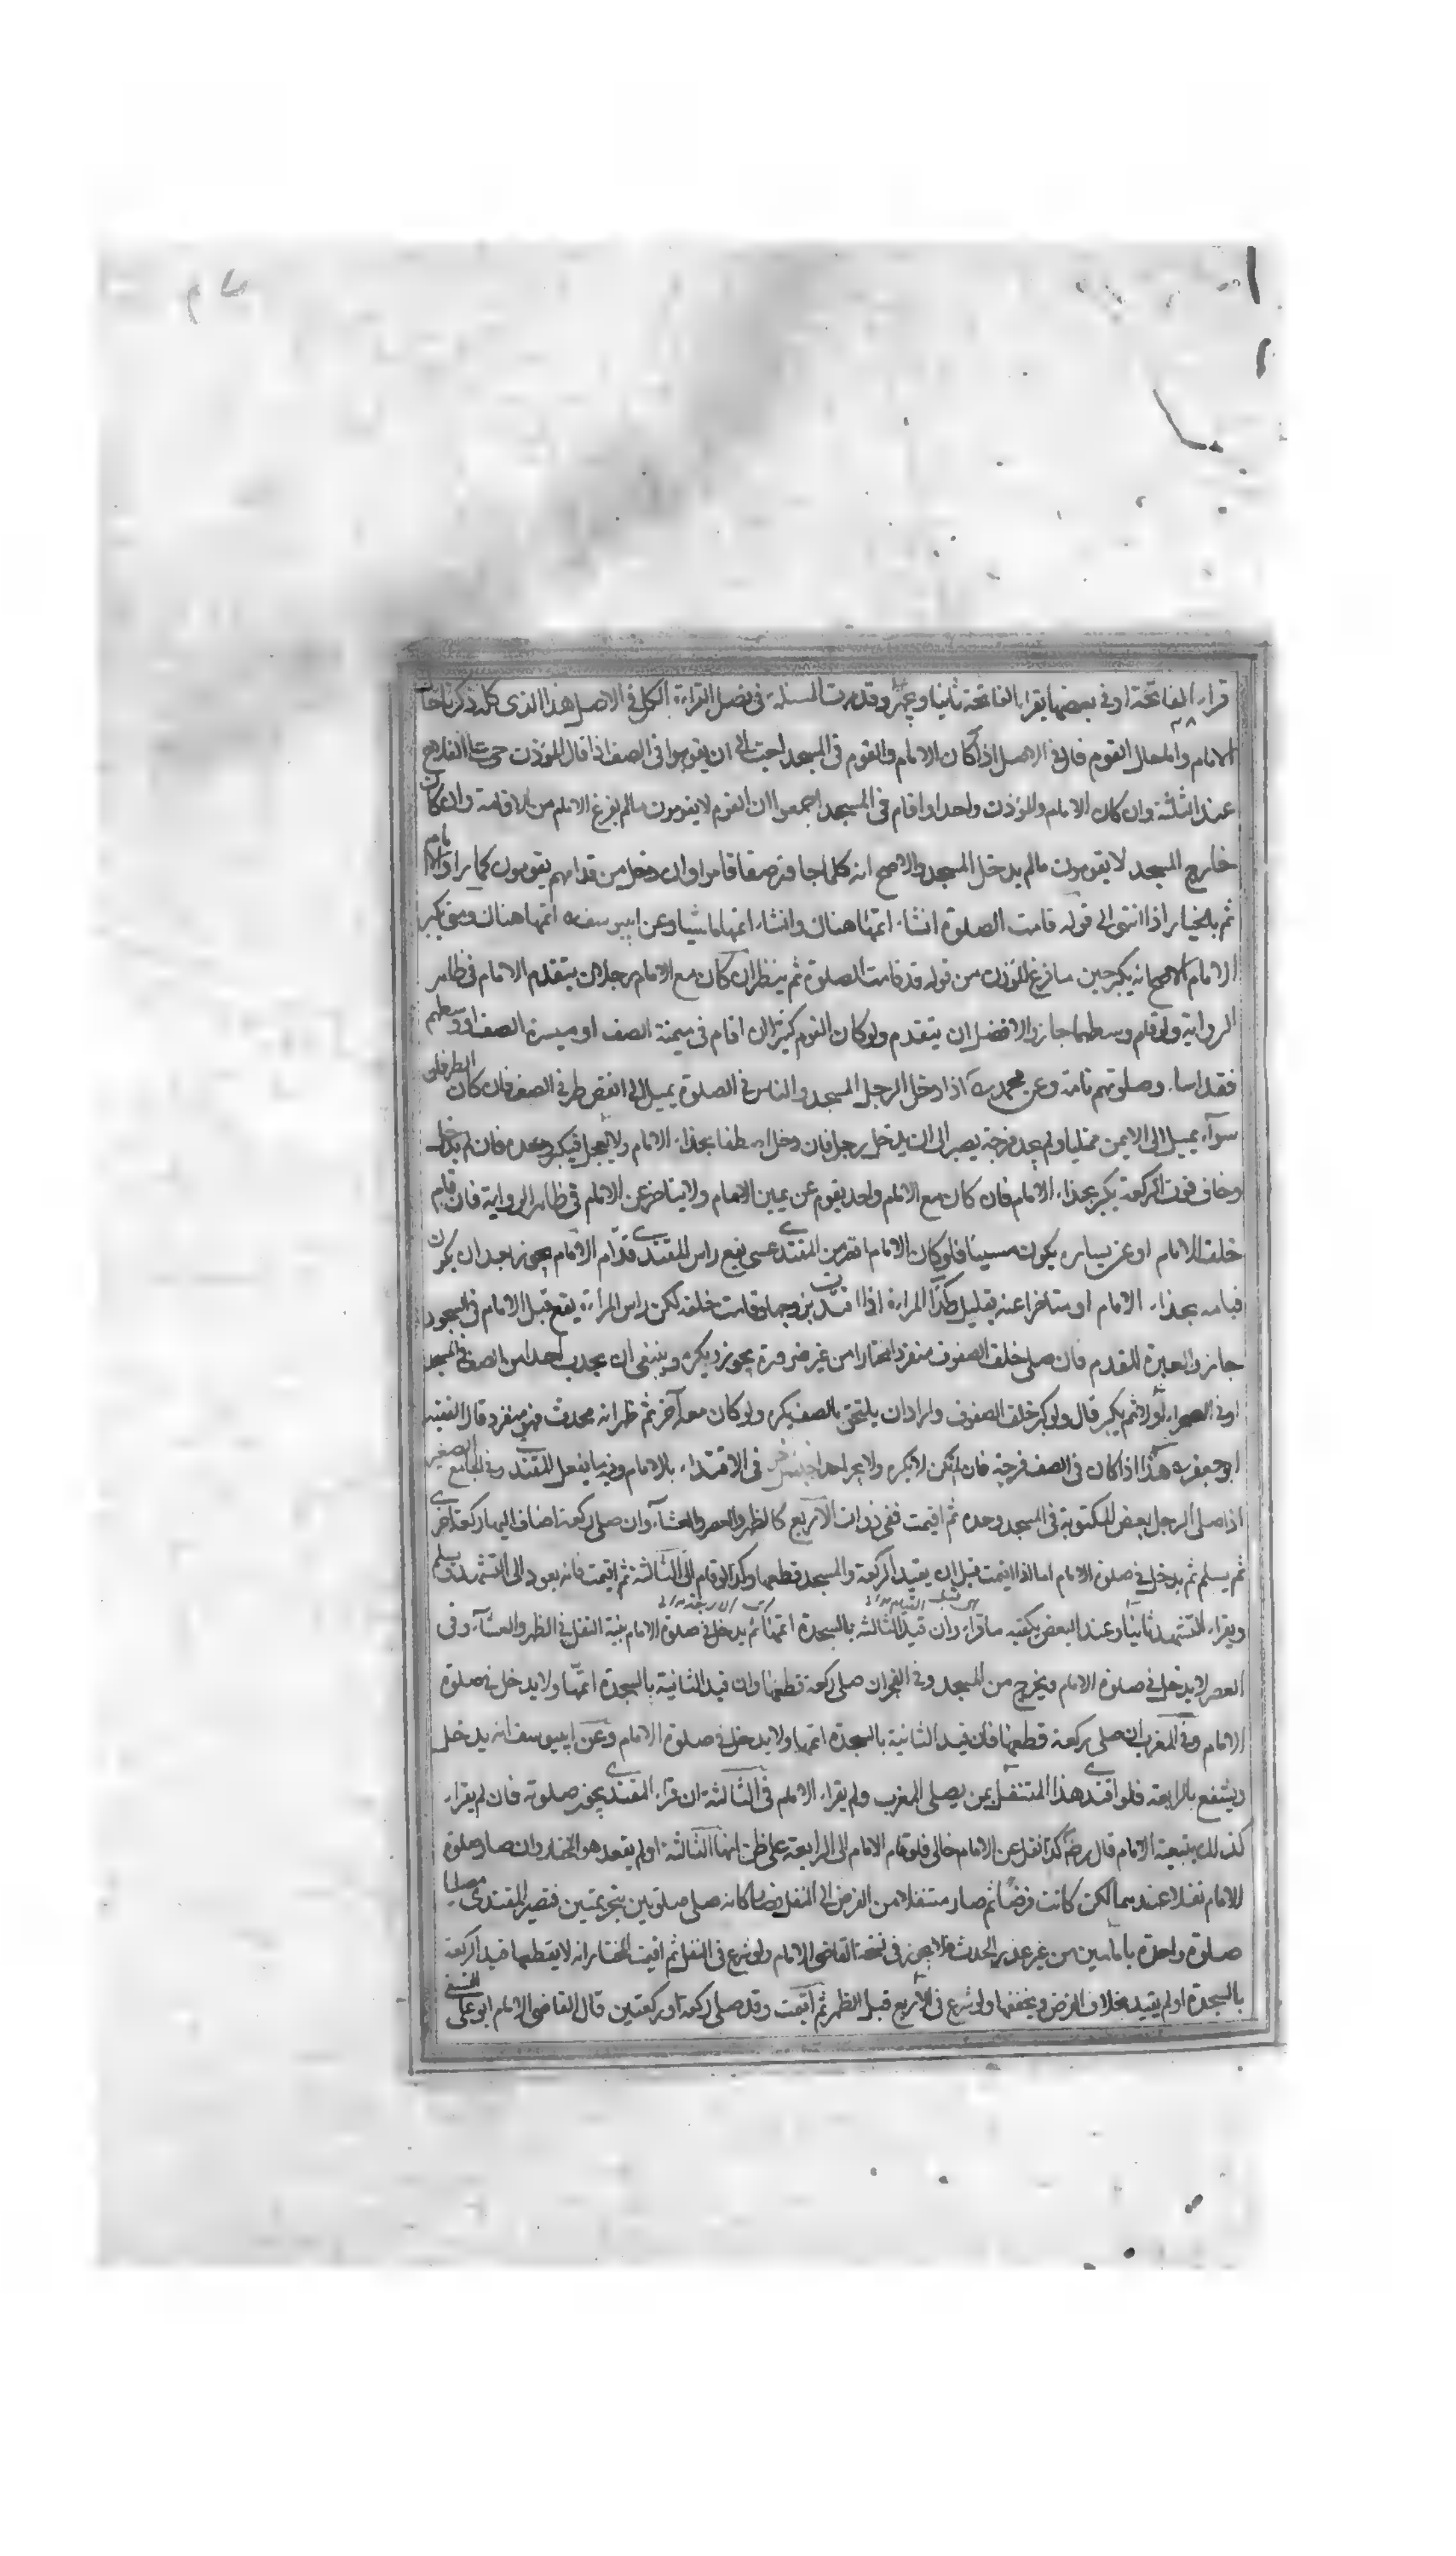 قراء الفاتحة او في بعضها يقرا بالفاتحة ثانيا ويجهر وقد مرت المسئلة في فصل القراءة الكل في الاصل هذا الذي كله ذكرنا حال
الامام واما حال القوم قال في الاصل اذا كان الامام والقوم في المسجد احب الي ان يقوموا في الصف اذا قال المؤذن حي على الفلاح
عند الثلثة وان كان الامام والمؤذن واحدا واقام في المسجد اجمعوا ان القوم لا يقومون مالم يفرغ الامام من الاقامة وان كان
خارج المسجد لا يقومون مالم يدخل المسجد والاصح انه كلما جاوز صفا قاموا وان دخل من قدامهم يقومون كما راوا الامام
ثم بالخيار اذا انتهى الى قوله قامت الصلوة انشاء اتمها هناك وانشاء اتمها ماشيا وعن ابي يوسف اتمها هناك ومتى يكبر
الامام الاصح انه يكبر حين ما فرغ المؤذن من قوله قد قامت الصلوة ثم ينظر ان كان مع الامام رجلان يتقدم الامام في ظاهر
الرواية ولو قام وسطهما جاز والافضل ان يتقدم ولو كان القوم كثيرا ان اقام في ميمنة الصف او ميسرة الصف او وسطهم
فقد اساء وصلوتهم تامة وعن محمد اذا دخل الرجل المسجد والناس في الصلوة يميل الى انقص طرفي الصف فان كان الطرفان
سوآء يميل الى الايمن ممتليا ولم يجد فرجة يصبر الى ان يدخل رجل فان دخل اصطفا بحذاء الامام ولا يعجل فيكبر وحده فان لم يدخل
وخاف فوت الركعة يكبر بحذاء الامام فان كان مع الامام واحد يقوم عن يمين الامام ولا يتاخر عن الامام في ظاهر الرواية فان قام
خلف الامام او عن يساره يكون مسيئا فلو كان الامام اقصر من المقتدي عسى يقع راس المقتدي قدام الامام يجوز بعد ان يكون
قيامه بحذاء الامام او متاخرا عنه بقليل وكذا المراة اذا اقتدت بزوجها وقامت خلفه لكن راس المراة يقع قبل الامام في السجود
جاز والعبرة للقدم فان صلى خلف الصفوف منفردا مختارا من غير ضرورة يجوز ويكره وينبغي ان يجذب احدا من الصف في المسجد
او في الصحراء اولا ثم يكبر قال ولو كبر خلف الصفوف واراد ان يلتحق بالصف يكره ولو كان معه آخر ثم ظهر انه محدث فهو منفرد قال الفقيه
ابو جعفر هذا اذا كان في الصف فرجة فان لم تكن لا يكره ولا يجر احدا في الاقتداء بالامام وفيما يفعل المقتدي وفي الجامع الصغير
اذا صلى الرجل بعض المكتوبة في المسجد وحده ثم اقيمت ففي ذوات الاربع كالظهر والعصر والعشآء وان صلى ركعة اضاف اليها ركعة اخرى
ثم يسلم ثم يدخل في صلوة الامام اما اذا اقيمت قبل ان يقيد الركعة والسجد قطعها وكذا لو قام الى الثالثة ثم اقيمت فانه يعود الى التشهد ويسلم
ويقراء التشهد ثانيا وعند البعض يكفيه ما قراء وان قيد الثالثة بالسجدة اتمها ثم يدخل في صلوة الامام بنية النفل في الظهر والعشآء وفي
العصر لا يدخل في صلوة الامام ويخرج من المسجد وفي الفجر ان صلى ركعة قطعها وان قيد الثانية بالسجدة اتمها ولا يدخل في صلوة
الامام وفي المغرب ان صلى ركعة قطعها فان قيد الثانية بالسجدة اتمها ولا يدخل في صلوة الامام وعن ابي يوسف انه يدخل
ويشفع بالرابعة فلو اقتدى هذا المتنفل بمن يصلي المغرب ولم يقراء الامام في الثالثة ان قراء المقتدي يجوز صلوته فان لم يقراء
كذلك بتبعية الامام قال رضـ كذا نقل عن الامام خالي فلو قام الامام الى الرابعة على ظن انها الثالثة او لم يقعد هو المختار وان صار صلوة
الامام نفلا عندهما لكن كانت فرضا ثم صار متنفلا من الفرض الى النفل فصار كانه صلى صلوتين بتحريمتين فتصير المقتدي مصليا
صلوة واحدة بامامين من غير عذر الحدث فلا يجوز في نسخة القاضي الامام ولو شرع في النفل ثم اقيمت المختار انه لا يقطعها قيد الركعة
بالسجدة او لم يقيد بخلاف الفرض ويخففها ولو شرع في الاربع قبل الظهر ثم اقيمت وقد صلى ركعة او ركعتين قال القاضي الامام ابو علي النسفي